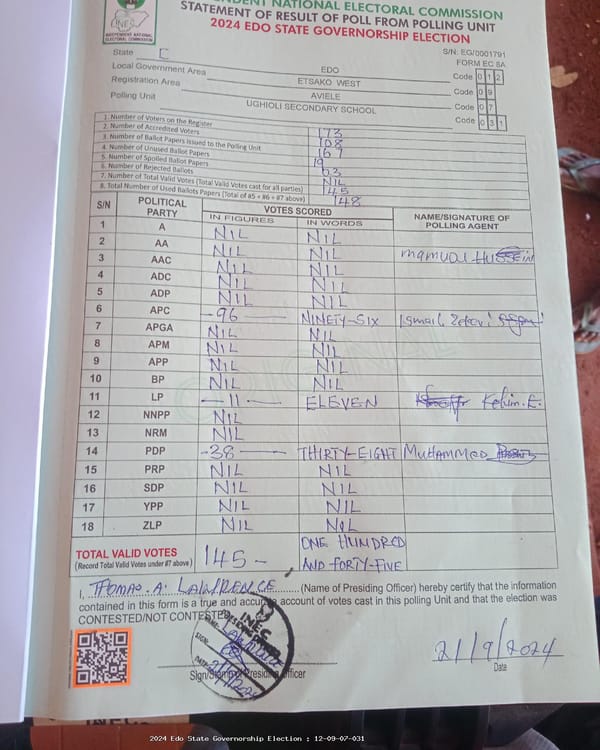 INDEPENDENT NATIONAL ELECTORAL COMMISSION
STATEMENT OF RESULT OF POLL FROM POLLING UNIT
2024 EDO STATE GOVERNORSHIP ELECTION
S/N: EG/0001791
FORM EC 8A
State EDO
Local Government Area ETSAKO WEST Code 012
Registration Area AVIELE Code 09
Polling Unit UGHIOLI SECONDARY SCHOOL Code 07
Code 031
1. Number of Voters on the Register 173
2. Number of Accredited Voters
3. Number of Ballot Papers Issued to the Polling Unit
4. Number of Unused Ballot Papers
5. Number of Spoiled Ballot Papers
6. Number of Rejected Ballots NIL
7. Number of Total Valid Votes (Total Valid Votes cast for all parties) 145
8. Total Number of Used Ballots Papers (Total of #5 + #6 + #7 above) 148
S/N POLITICAL PARTY VOTES SCORED NAME/SIGNATURE OF POLLING AGENT
IN FIGURES IN WORDS
1 A NIL NIL
2 AA NIL NIL
3 AAC NIL NIL
4 ADC NIL NIL
5 ADP NIL NIL
6 APC -96 NINETY-SIX Ismail
7 APGA NIL NIL
8 APM NIL NIL
9 APP NIL NIL
10 BP NIL NIL
11 LP - 11 - ELEVEN Kelvin. E.
12 NNPP NIL
13 NRM NIL
14 PDP -38 THIRTY-EIGHT MUHAMMED
15 PRP NIL NIL
16 SDP NIL NIL
17 YPP NIL NIL
18 ZLP NIL NIL
TOTAL VALID VOTES 145 - ONE HUNDRED
(Record Total Valid Votes under #7 above) AND FORTY-FIVE
I, THOMAS. A. LAWRENCE (Name of Presiding Officer) hereby certify that the information
contained in this form is a true and accurate account of votes cast in this polling Unit and that the election was
CONTESTED/NOT CONTESTED
INEC
21/9/2024
Sign/Stamp of Presiding Officer Date
2024 Edo State Governorship Election : 12-09-07-031